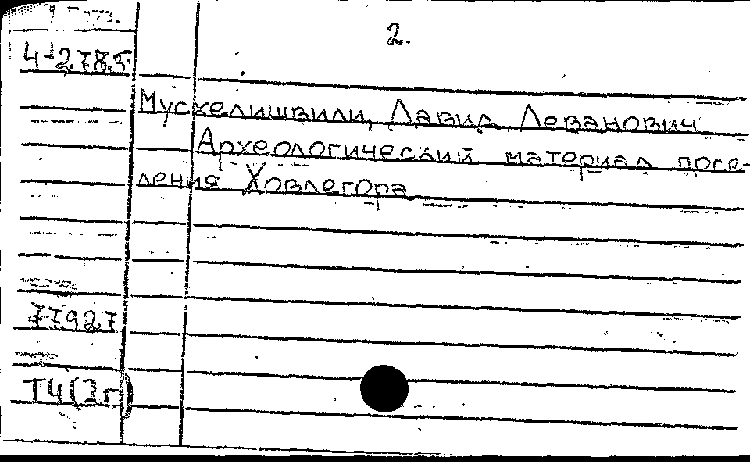 2.
4-2785
Мусхелишвили, Давид Леванович
Археологический материал посе-
ления Ховлегора
77927
Т4(2г)